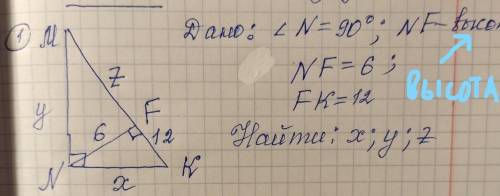 ① M Дано: ∠ N = 90°; NF – высо
ВЫСОТА
z NF = 6;
y F FK = 12
6 12
Найти: x; y; z
N x K